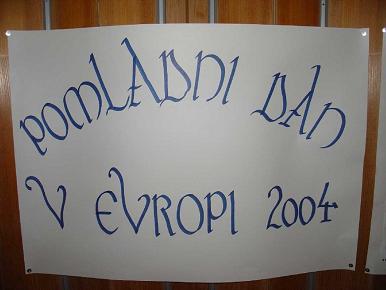 POMLADNI DAN
V EVROPI 2004